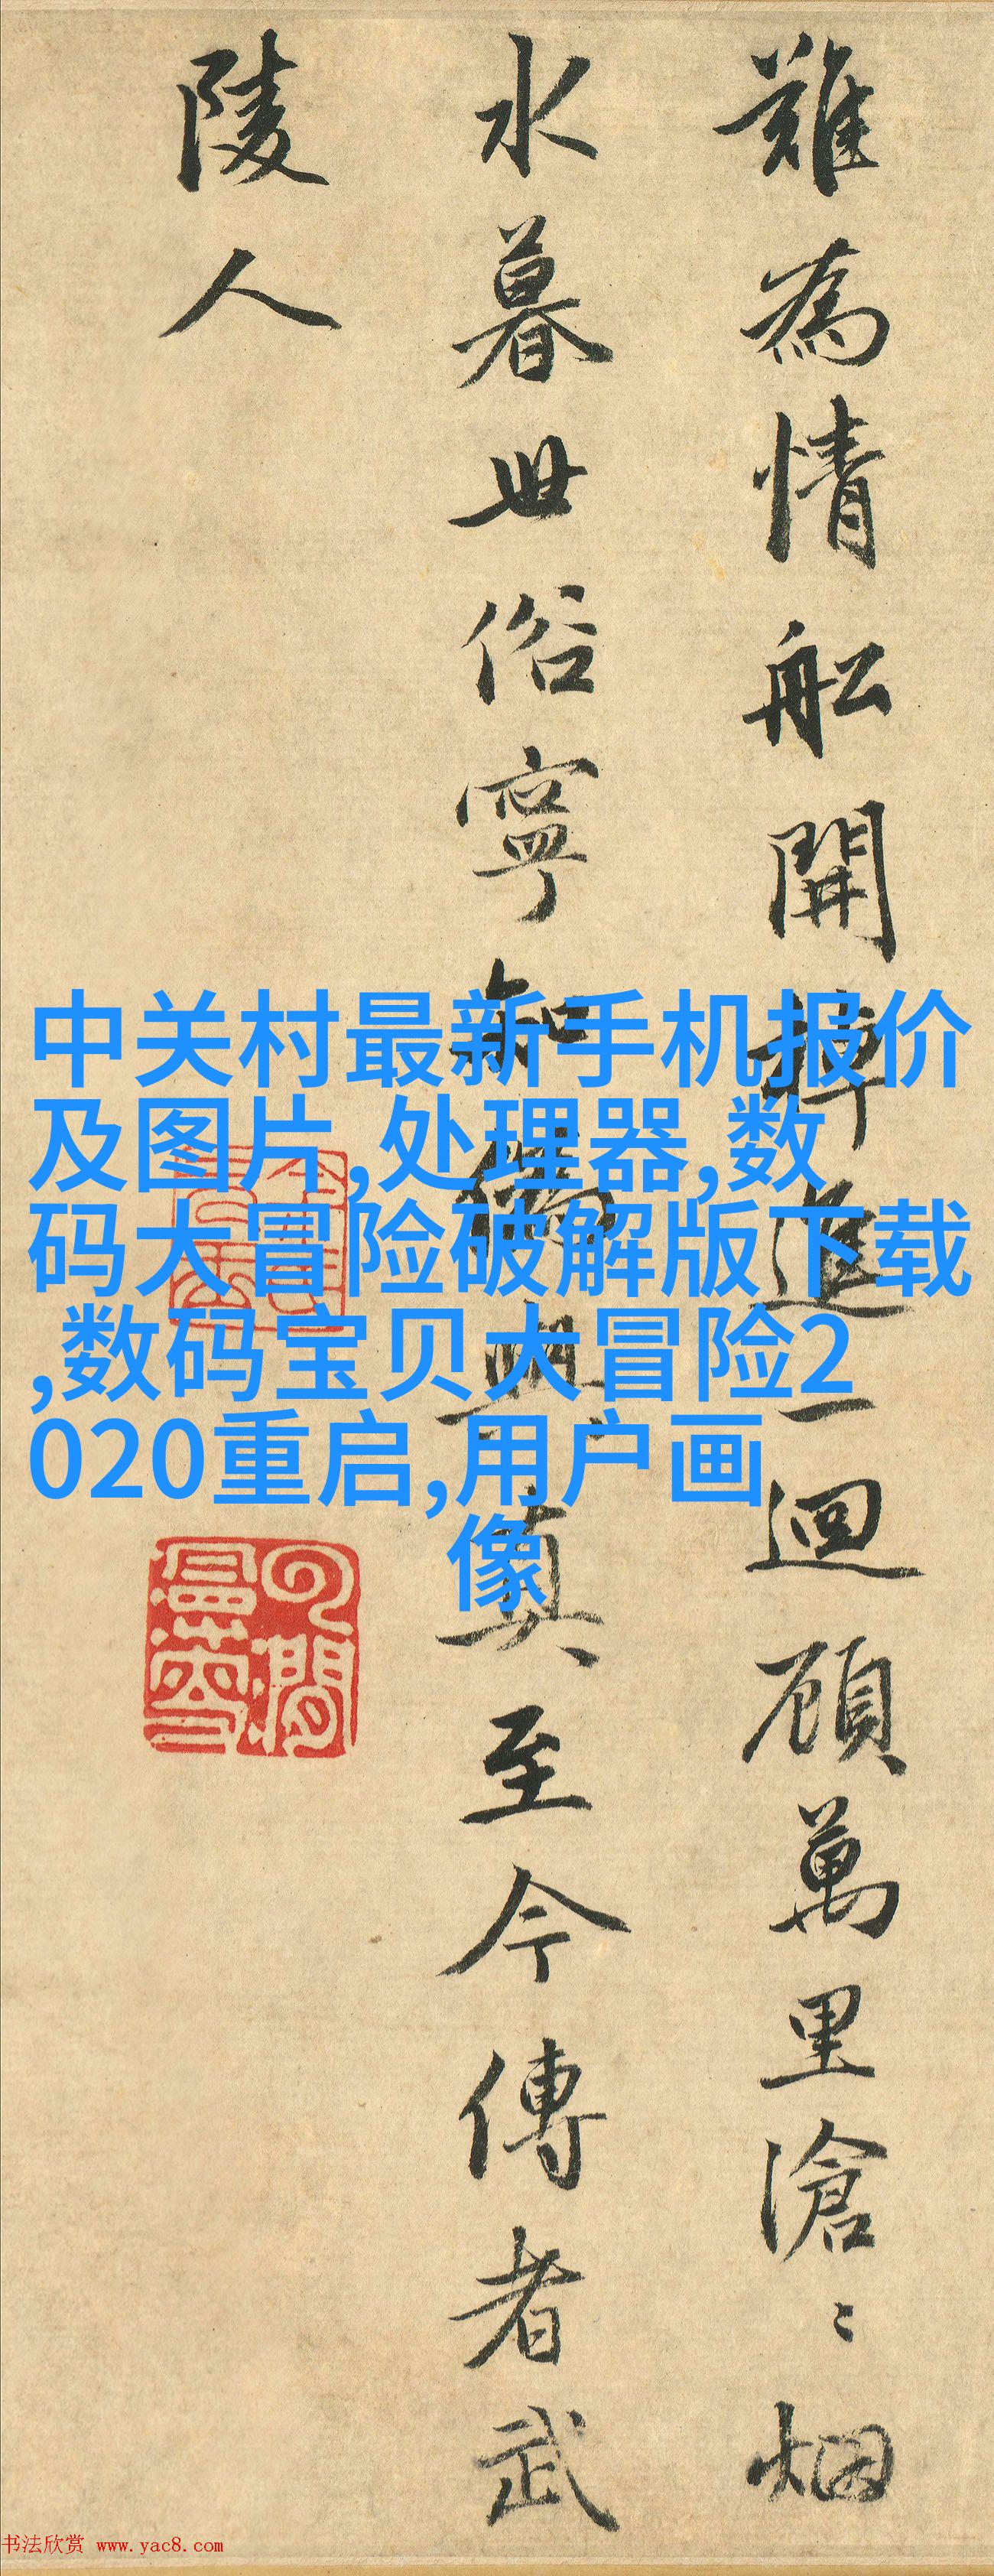 難為情船開棹進一迴顧萬里滄〻烟
水暮世俗寧知偽與真至今傳者武
陵人
中关村最新手机报价
及图片,处理器,数
码大冒险破解版下载
,数码宝贝大冒险2
020重启,用户画
像
书法欣赏 www.yac8.com